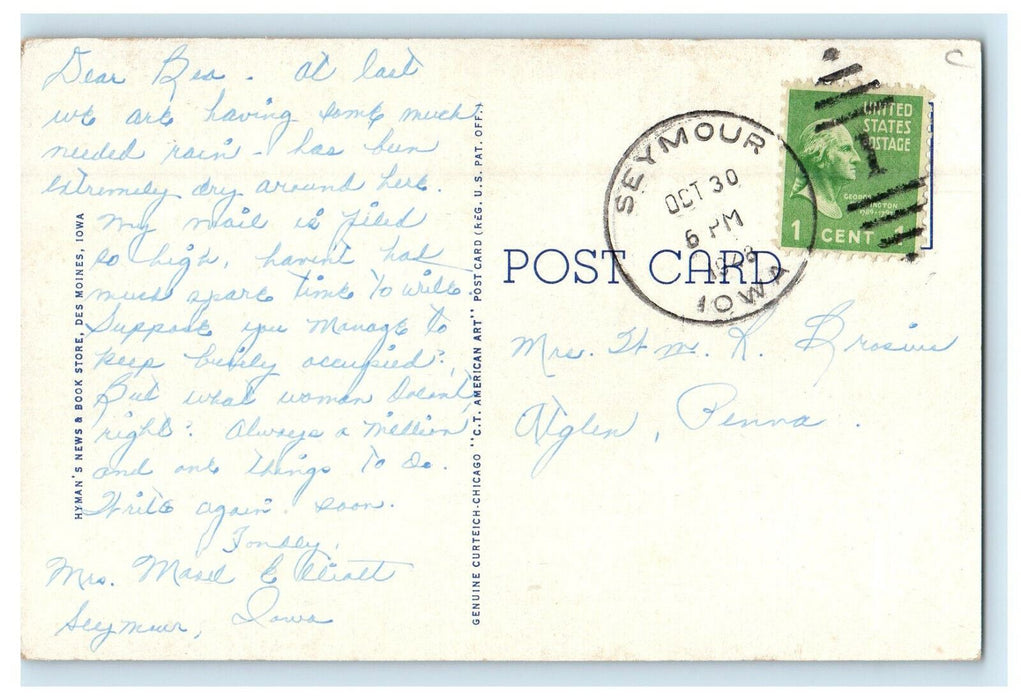 Dear Bea - At last
we are having some much
needed rain - has been
extremely dry around here.
My mail is piled
so high, havent had
much spare time to write.
Suppose you manage to
keep busily occupied?
But what woman doesnt,
right? Always a million
and one things to do.
Write again soon.
Fondly,
Mrs. Elliott
Seymour, Iowa
HYMAN'S NEWS & BOOK STORE, DES MOINES, IOWA
GENUINE CURTEICH-CHICAGO "C.T. AMERICAN ART" POST CARD (REG. U.S. PAT. OFF.)
POST CARD
SEYMOUR
OCT 30
6 PM
IOWA
UNITED
STATES
POSTAGE
1 CENT 1
Mrs. Wm. K. Brosius
Atglen, Penna.
C